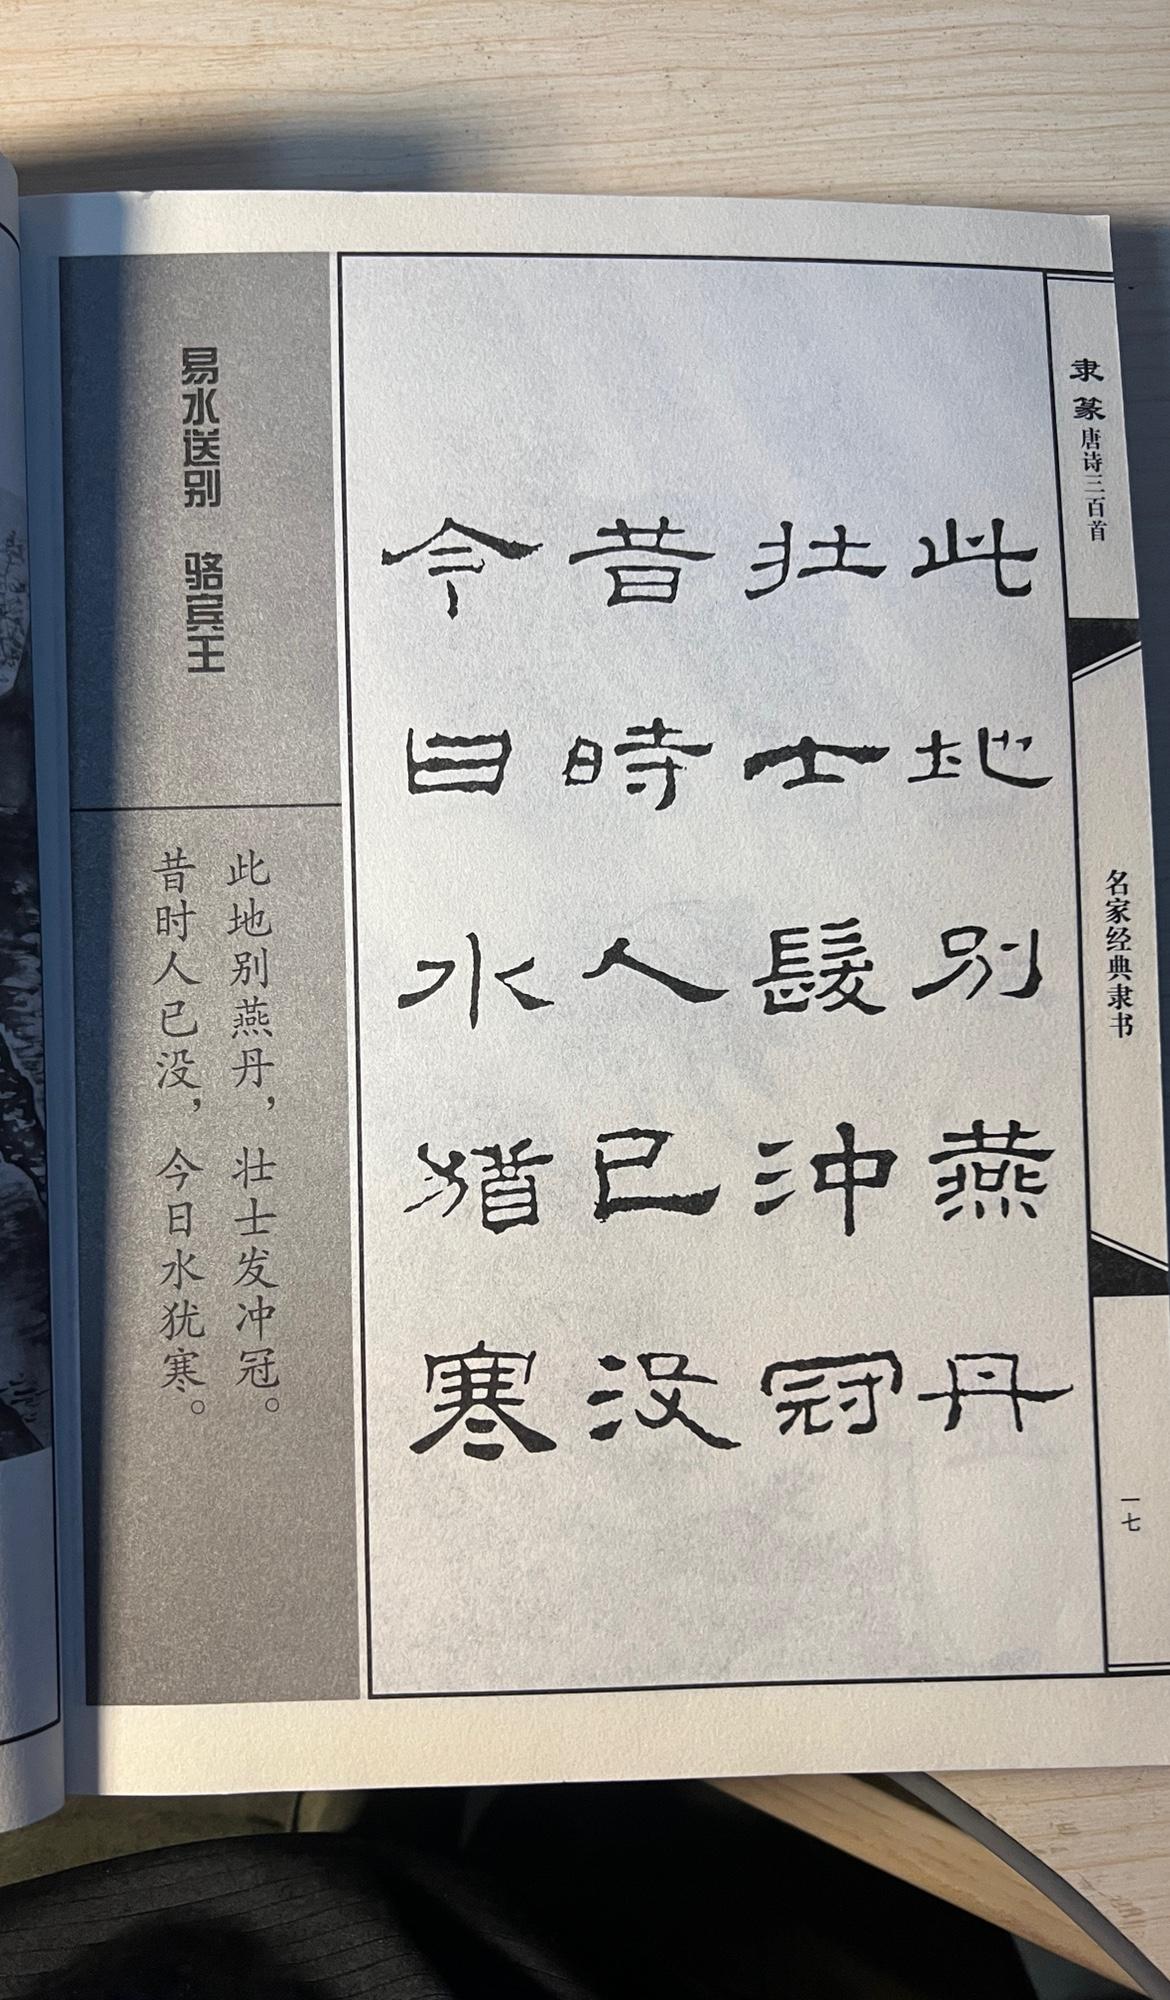 隶篆唐诗三百首
名家经典隶书
一七
此地别燕丹
壮士髮冲冠
昔時人已没
今日水猶寒
易水送别 骆宾王
此地别燕丹，壮士发冲冠。
昔时人已没，今日水犹寒。